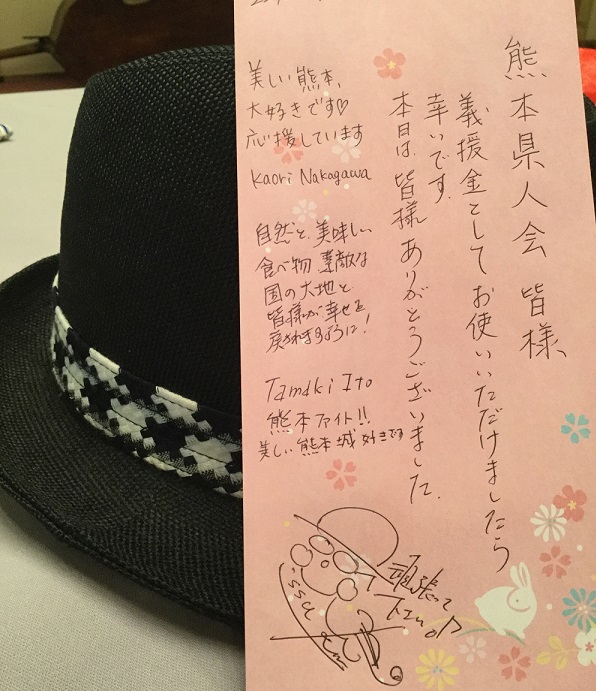 熊本県人会 皆様、
義援金として お使いいただけましたら
幸いです。
本日は、皆様 ありがとうございました。
美しい熊本、
大好きです♡
応援しています
Kaori Nakagawa
自然と、美味しい
食べ物、素敵な
国の大地と
皆様が幸せを
戻れますように!
Tamaki Ito
熊本ファイト!!
美しい熊本城好きです
頑張って
下さい♪